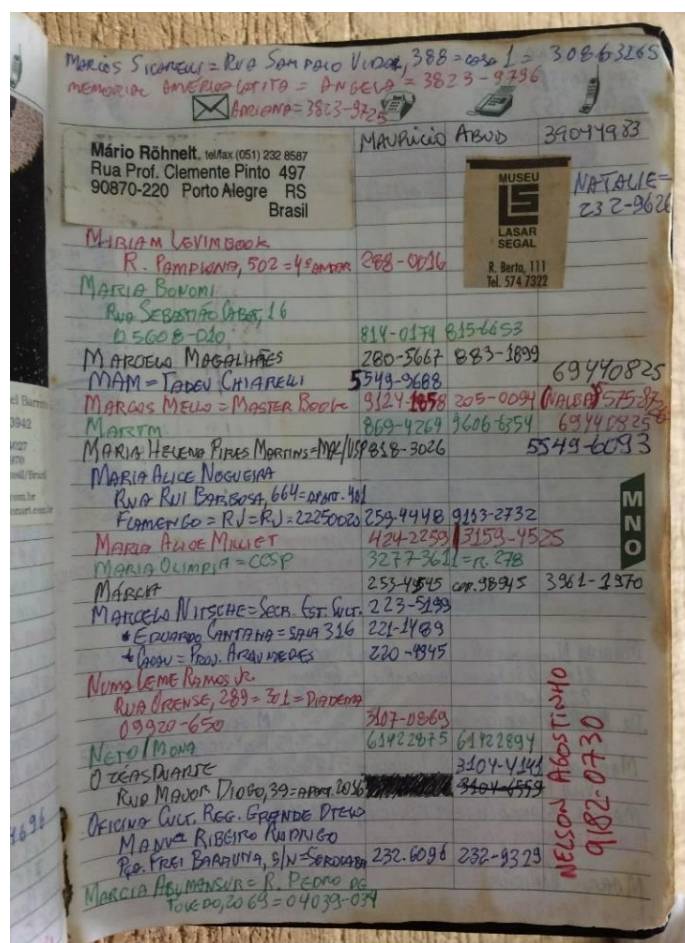 MARCOS SICARELLI = RUA SAMPAIO VIDAL, 388 = casa 1 = 30863265
MEMORIAL AMÉRICA LATITA = ANGELA = 3823-9796
ADRIANA = 3823-9725
MAURICIO ABUD 39044983
Mário Röhnelt, tel/fax (051) 232 8587
Rua Prof. Clemente Pinto 497
90870-220 Porto Alegre RS
Brasil
MUSEU
LS
LASAR
SEGAL
R. Berta, 111
Tel. 574 7322
NATALIE =
232-9626
MIRIAM LEVIMBOOK
R. PAMPLONA, 502 = 4º ANDAR 288-0016
MARIA BONOMI
RUA SEBASTIÃO CABOT, 16
05608-010 814-0174 815-6653
MARCELO MAGALHÃES 280-5667 883-1899
69440825
MAM = TADEU CHIARELLI 5549-9688
MARCOS MELLO = MASTER BOOK 9124-1858 205-0094 (NALBA) 575-87
MARTM 869-4269 9606-6354 69440825
MARIA HELENA PIRES MARTINS = MAC/USP 818-3026 5549-6093
MARIA ALICE NOGUEIRA
RUA RUI BARBOSA, 664 = APART. 401
FLAMENGO = RJ = RJ = 22250020 259-4448 9153-2732
MARIA ALICE MILLIET 424-2259 3159-4525
MARIA OLIMPIA = CCSP 3277-3611 = R. 278
MNO
MÁRCIA 253-4545 COD. 98945 3961-1970
MARCELO NITSCHE = SECR. EST. CULT. 223-5199
* EDUARDO SANTANA = SALA 316 221-1489
* CADAU = PROJ. ARQUIMEDES 220-4945
NUMA LEME RAMOS JR
RUA ORENSE, 289 = 301 = DIADEMA
09920-650 3107-0869
NETO / MONA 61422875 61422894
OZÉAS DUARTE 3104-4141
RUA MAJOR DIOGO, 39 = APART. 2016 3104-6559
OFICINA CULT. REG. GRANDE OTELO
MANUEL RIBEIRO RODRIGO
PÇA. FREI BARAUNA, S/N = SOROCABA 232.6096 232-9329
MARCIA ABUMANSUR = R. PEDRO DE
TOLEDO, 2069 = 04039-034
NELSON AGOSTINHO
9182-0730